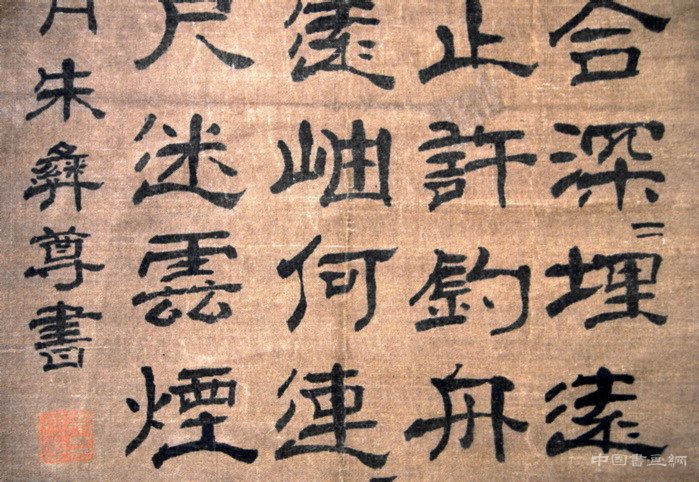 合深〻埋遠
止許釣舟
遠岫何連
尺迷雲煙
月朱彝尊書
中国書画網